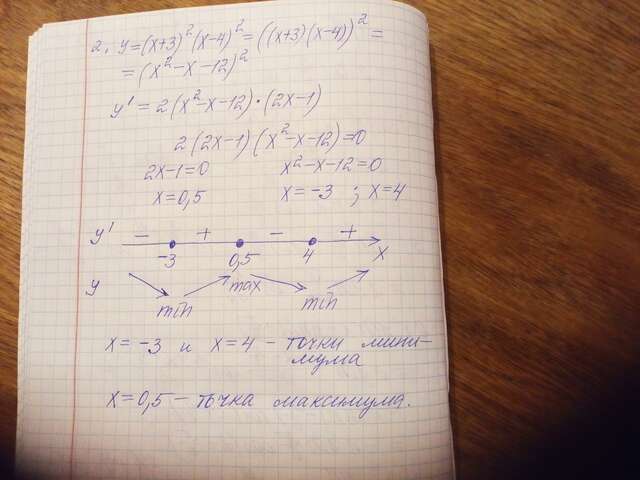 2. y=(x+3)²(x-4)²=((x+3)(x-4))²=
=(x²-x-12)²
y'=2(x²-x-12)·(2x-1)
2(2x-1)(x²-x-12)=0
2x-1=0 x²-x-12=0
x=0,5 x=-3 ; x=4
y' - + - +
-3 0,5 4 x
y min max min
x=-3 и x=4 - точки мини-
мума
x=0,5 - точка максимума.